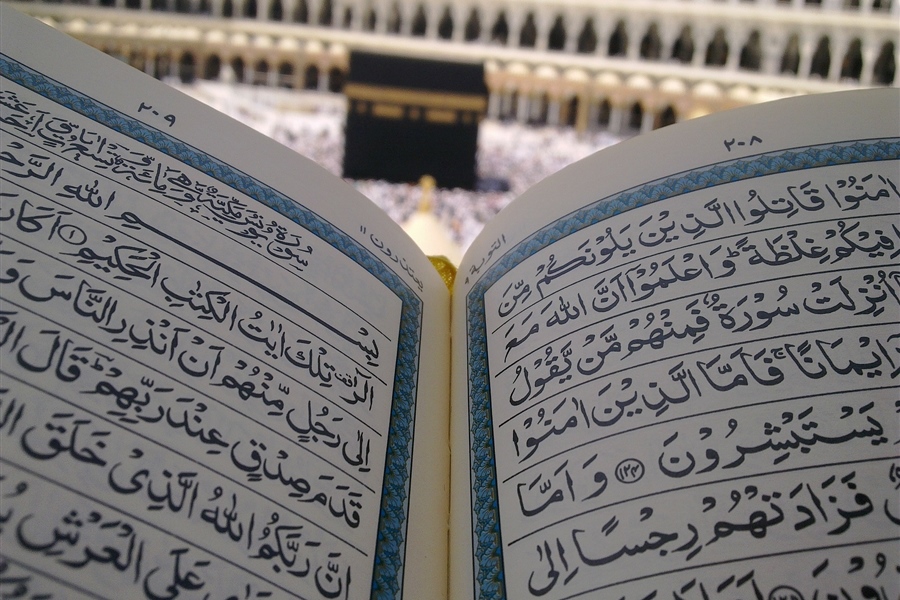 ٢٠٨
التوبة ٩
اٰمَنُوۡا قَاتِلُوا الَّذِیۡنَ یَلُوۡنَكُمۡ مِّنَ
فِیۡكُمۡ غِلۡظَةً ؕ وَ اعۡلَمُوۡۤا اَنَّ اللّٰهَ مَعَ
اُنۡزِلَتۡ سُوۡرَةٌ فَمِنۡهُمۡ مَّنۡ یَّقُوۡلُ
اِیۡمَانًا ۚ فَاَمَّا الَّذِیۡنَ اٰمَنُوۡا
یَسۡتَبۡشِرُوۡنَ ﴿١٢٤﴾ وَ اَمَّا
فَزَادَتۡهُمۡ رِجۡسًا اِلٰی
٢٠٩
یعتذرون ١١
سُوۡرَةُ یُوۡنُسَ مَكِّیَّةٌ وَّهِیَ مِائَةٌ وَّتِسۡعُ اٰیَاتٍ
بِسۡمِ اللّٰهِ
الٓرٰ ۟ تِلۡكَ اٰیٰتُ الۡكِتٰبِ الۡحَكِیۡمِ ﴿١﴾ اَكَانَ
اِلٰی رَجُلٍ مِّنۡهُمۡ اَنۡ اَنۡذِرِ النَّاسَ وَ
قَدَمَ صِدۡقٍ عِنۡدَ رَبِّهِمۡ ؕ قَالَ
اِنَّ رَبَّكُمُ اللّٰهُ الَّذِیۡ خَلَقَ
عَلَی الۡعَرۡشِ